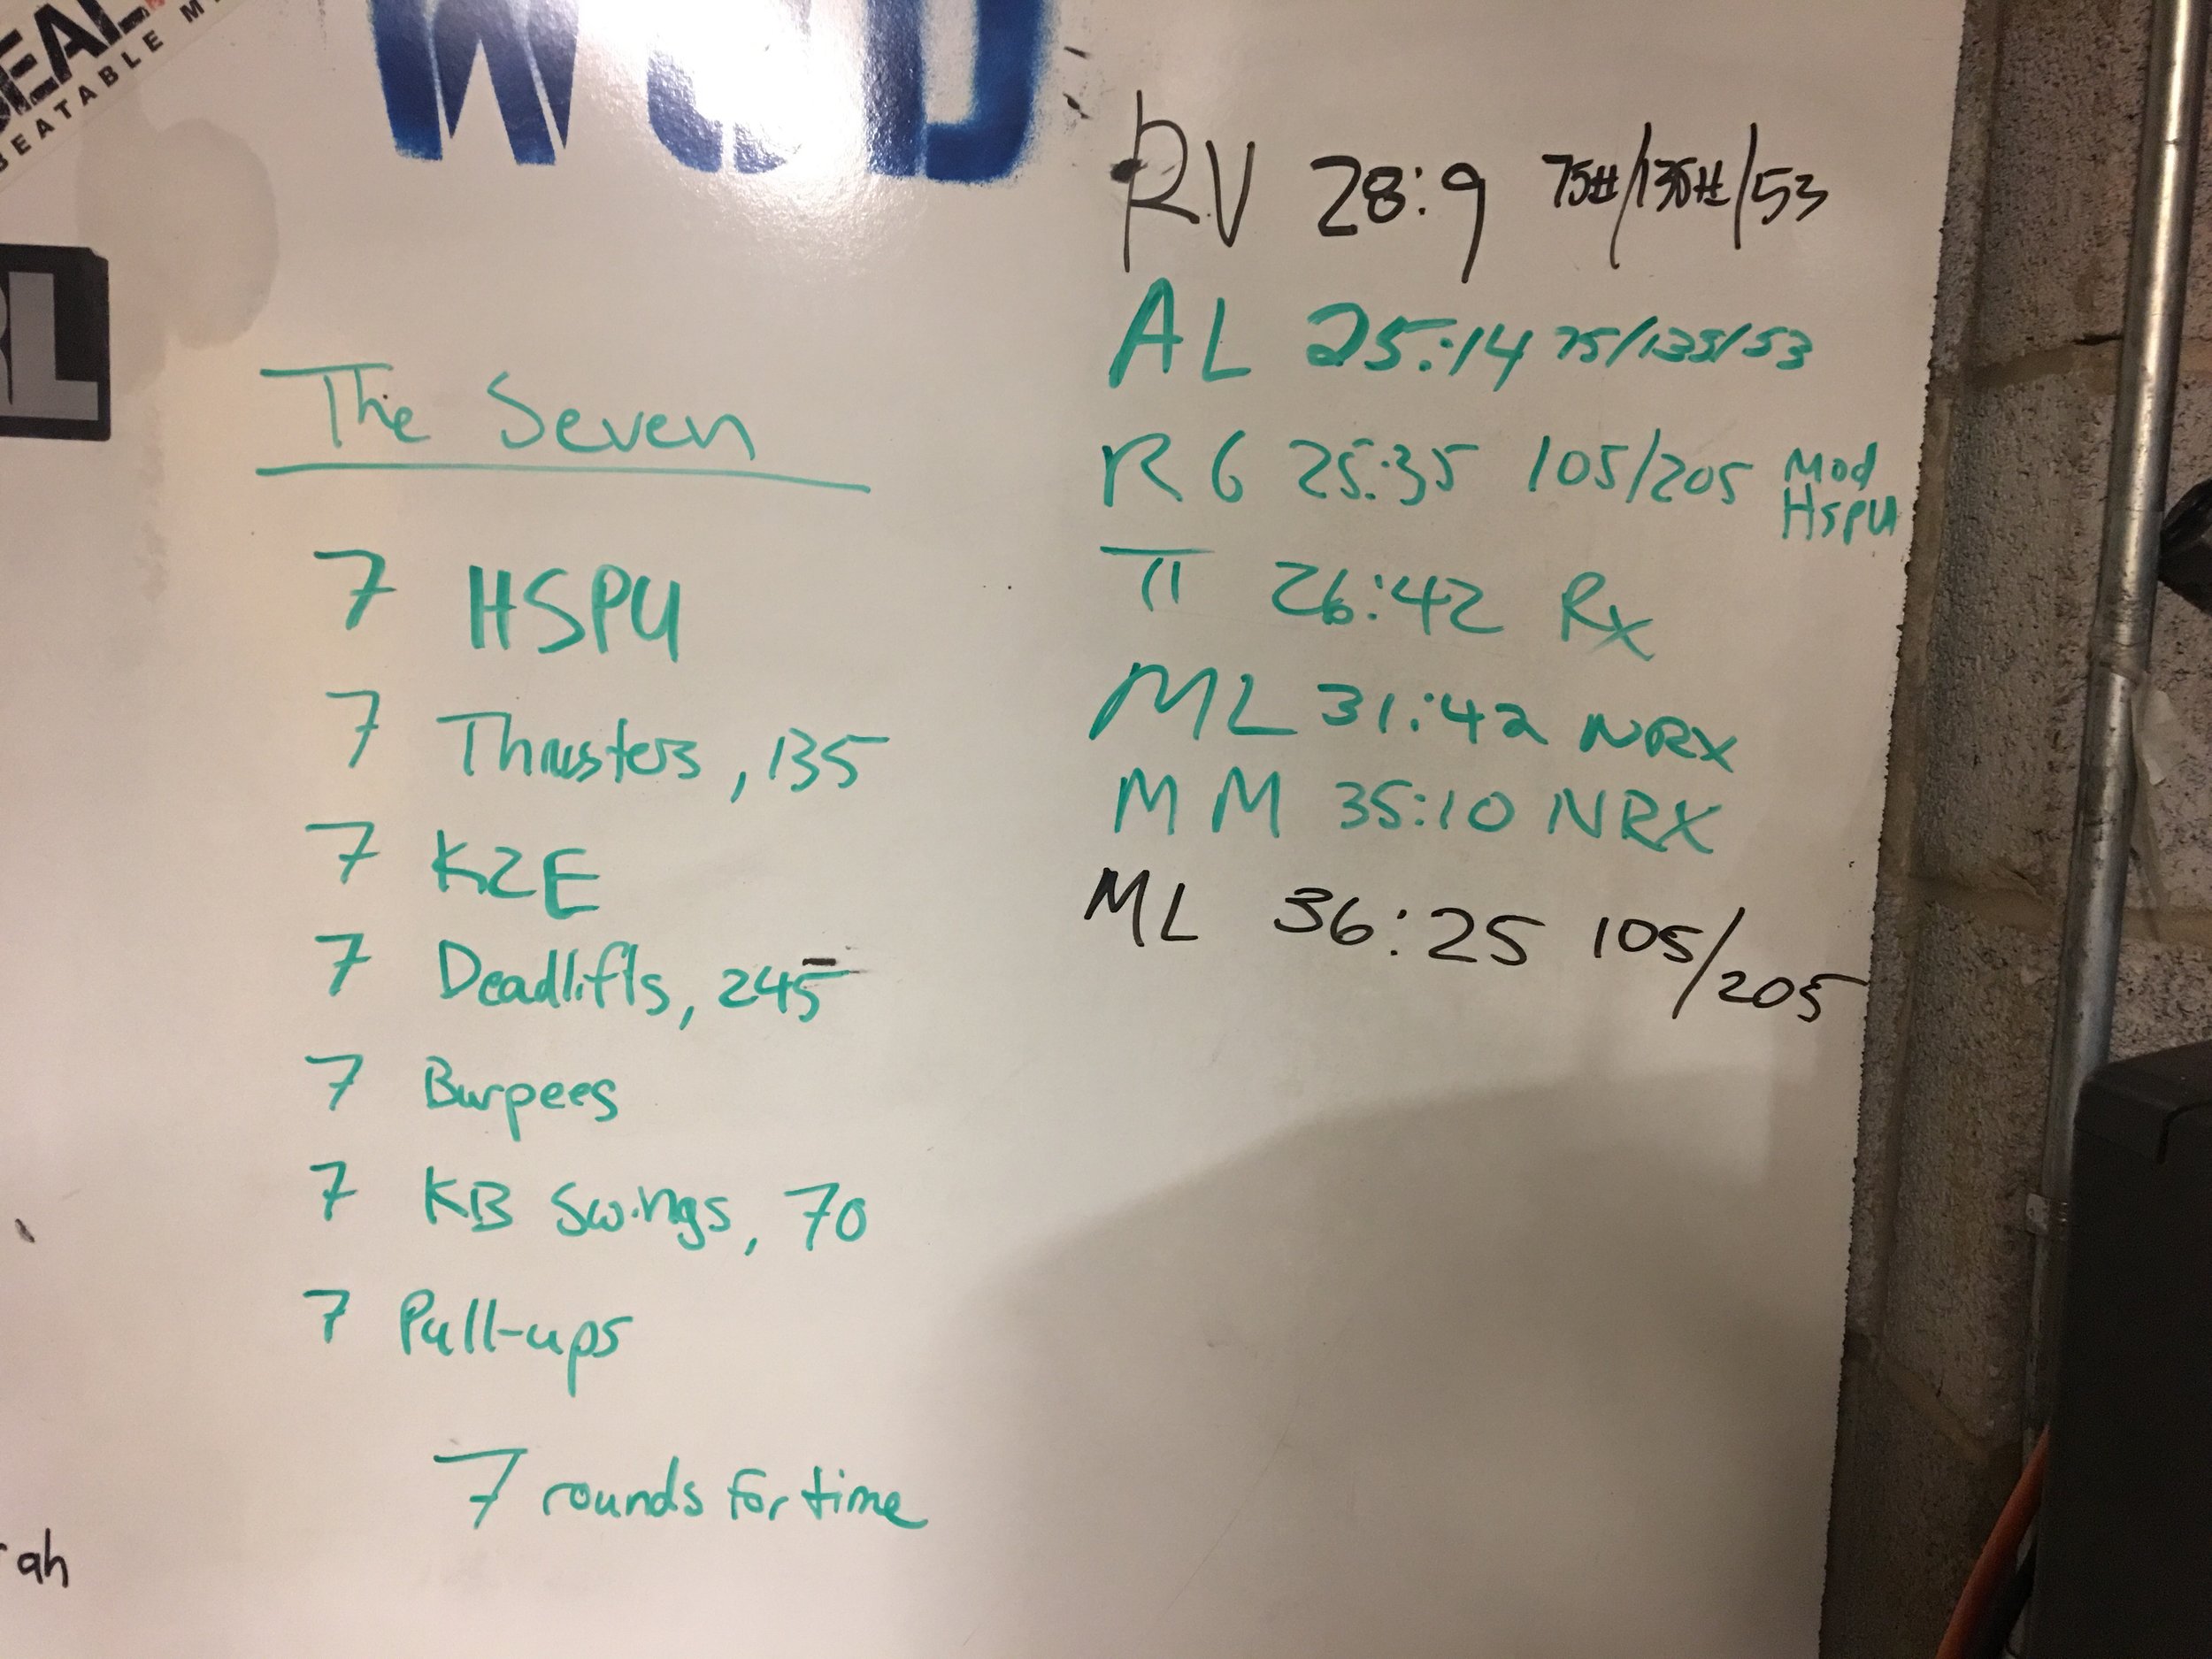 WOD
The Seven
7 HSPU
7 Thrusters, 135
7 K2E
7 Deadlifts, 245
7 Burpees
7 KB Swings, 70
7 Pull-ups
7 rounds for time
RV 28:9 75#/135#/53
AL 25:14 75/135/53
RG 25:35 105/205 Mod
HSPU
26:42 Rx
ML 31:42 NRX
MM 35:10 NRX
ML 36:25 105/205